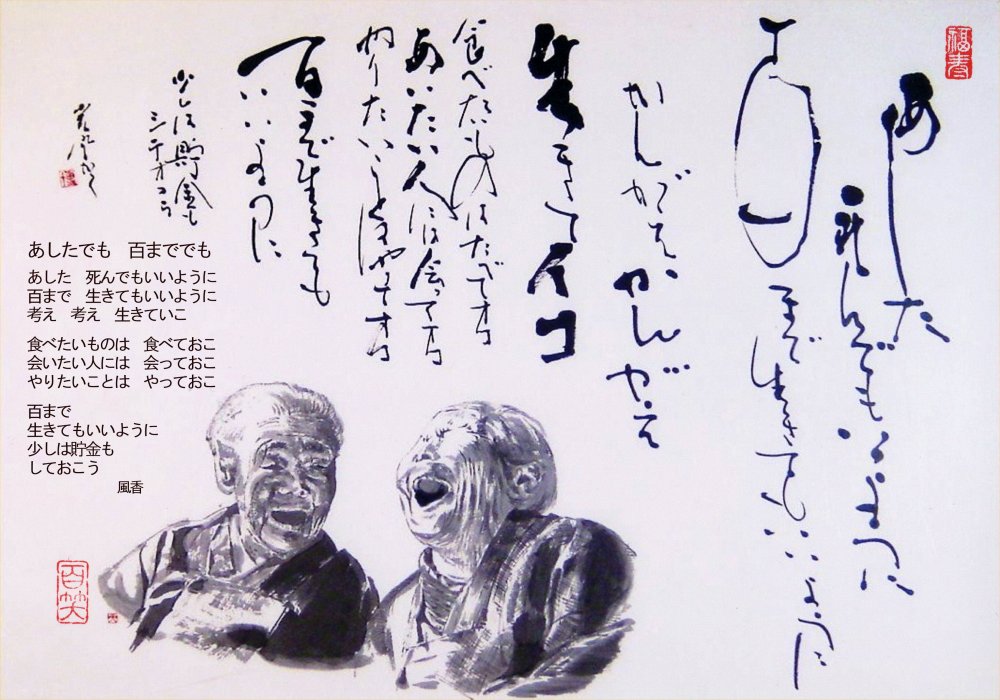 福寿
あした
死んでもいいように
百まで生きてもいいように
かんがえ かんがえ
生きてイコ
食べたいものはたべてオコ
あいたい人には会ってオコ
やりたいことはやってオコ
百まで生きても
いいように
少しは貯金も
シテオコう
あしたでも　百まででも
あした　死んでもいいように
百まで　生きてもいいように
考え　考え　生きていこ
食べたいものは　食べておこ
会いたい人には　会っておこ
やりたいことは　やっておこ
百まで
生きてもいいように
少しは貯金も
しておこう
風香
百笑